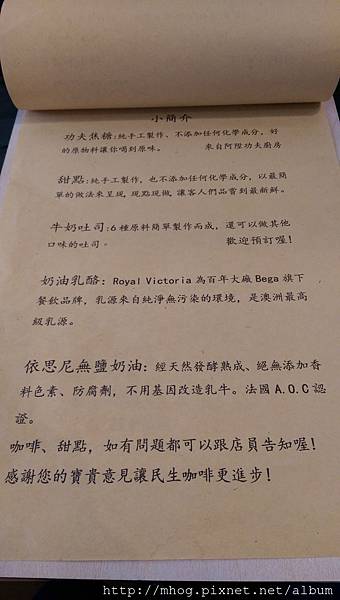 小簡介
功夫焦糖:純手工製作、不添加任何化學成分，好
的原物料讓你喝到原味。 來自阿陞功夫廚房
甜點:純手工製作，也不添加任何化學成分，以最簡
單的做法來呈現，現點現做，讓客人們品嘗到最新鮮。
牛奶吐司:6種原料簡單製作而成，還可以做其他
口味的吐司。 歡迎預訂喔!
奶油乳酪: Royal Victoria 為百年大廠 Bega 旗下
餐飲品牌，乳源來自純淨無污染的環境，是澳洲最高
級乳源。
依思尼無鹽奶油: 經天然發酵熟成、絕無添加香
料色素、防腐劑，不用基因改造乳牛。法國 A.O.C 認
證。
咖啡、甜點，如有問題都可以跟店員告知喔!
感謝您的寶貴意見讓民生咖啡更進步!
http://mhog.pixnet.net/album